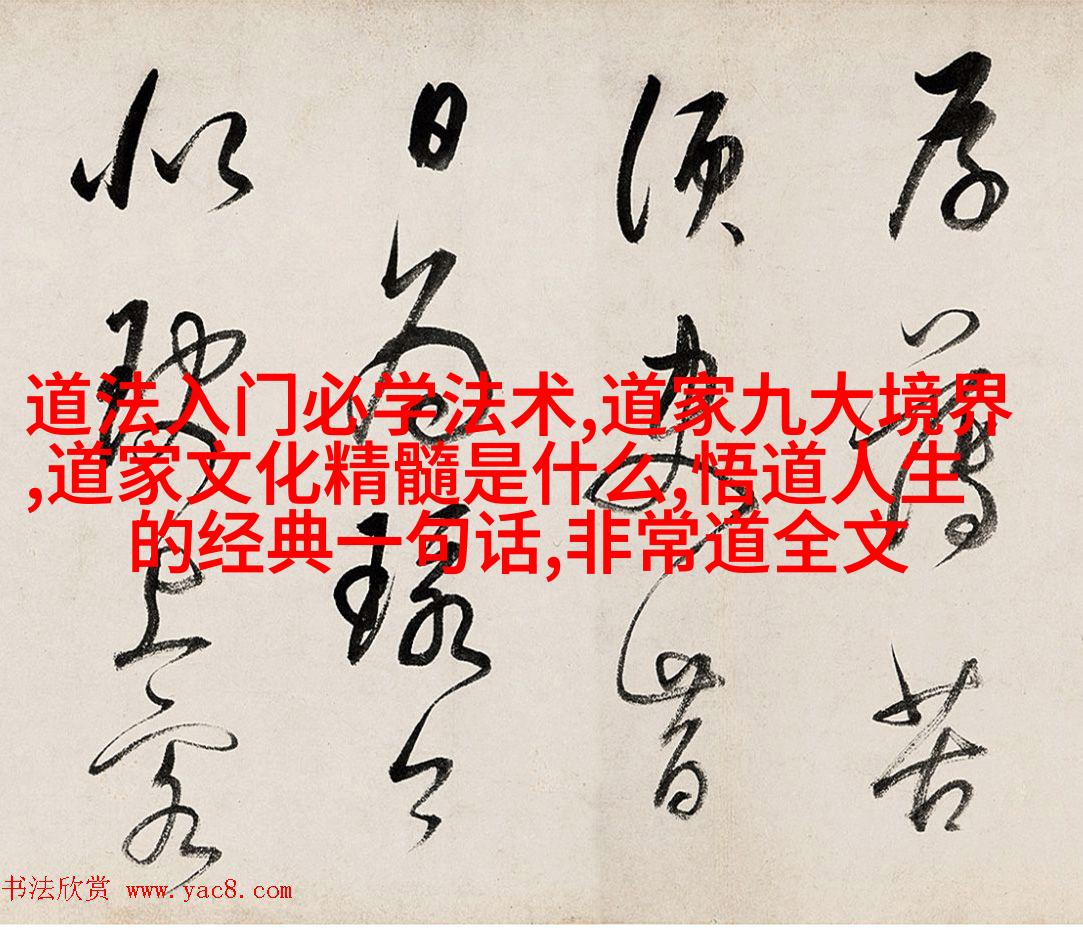 薄苦
须
日为
上客
道法入门必学法术,道家九大境界
,道家文化精髓是什么,悟道人生
的经典一句话,非常道全文
书法欣赏 www.yac8.com